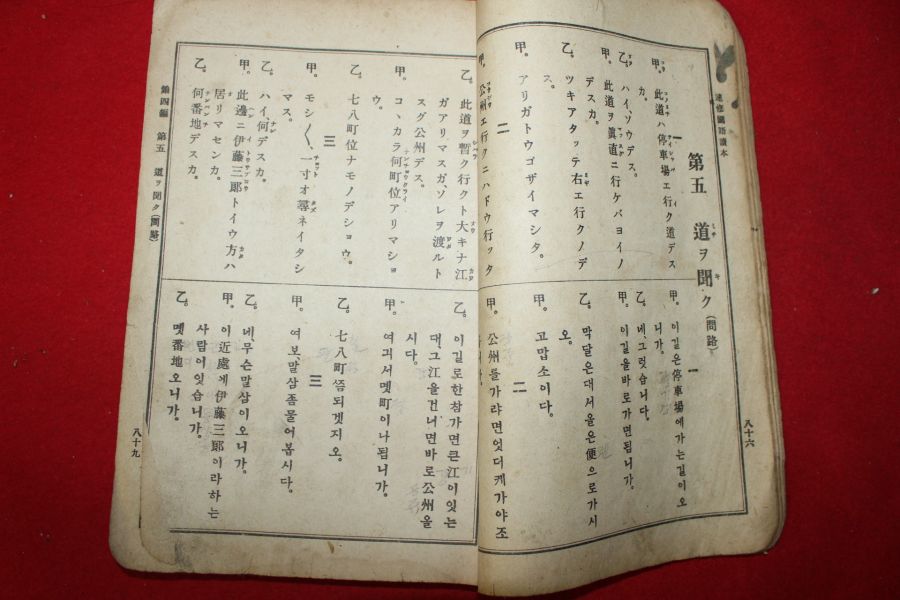 速修國語讀本
第五 道ヲ聞ク(問路)
一
甲。此道ハ停車場エ行ク道デス
カ。
乙。ハイ、ソウデス。
甲。此道ヲ眞直ニ行ケバヨイノ
デスカ。
乙。ツキアタッテ右エ行クノデ
ス。
甲。アリガトウゴザイマシタ。
二
甲。公州エ行クニハドウ行ッタ
一
甲。이길은停車場에가는길이오
니가。
乙。네그럿습니다。
甲。이길을바로가면됩니가。
乙。막달은대서올은便으로가시
오。
甲。고맙소이다。
二
甲。公州를가랴면엇더케가야조
八十六
乙。此道ヲ暫ク行クト大キナ江
ガアリマスガ、ソレヲ渡ルト
スグ公州デス。
甲。コヽカラ何町位アリマショ
ウ。
乙。七八町位ナモノデショウ。
三
甲。モシ〱、一寸オ尋ネイタシ
マス。
乙。ハイ、何デスカ。
甲。此邊ニ伊藤三郞トイウ方ハ
居リマセンカ。
乙。何番地デスカ。
乙。이길로한참가면큰江이잇는
대、그江을건너면바로公州올
시다。
甲。여긔서몟町이나됩니가。
乙。七八町쯤되겟지오。
三
甲。여보말삼좀물어봅시다。
乙。네、무슨말삼이오니가。
甲。이近處에伊藤三郞이라하는
사람이잇습니가。
乙。몟番地오니가。
第四編 第五 道ヲ聞ク(問路)
八十九